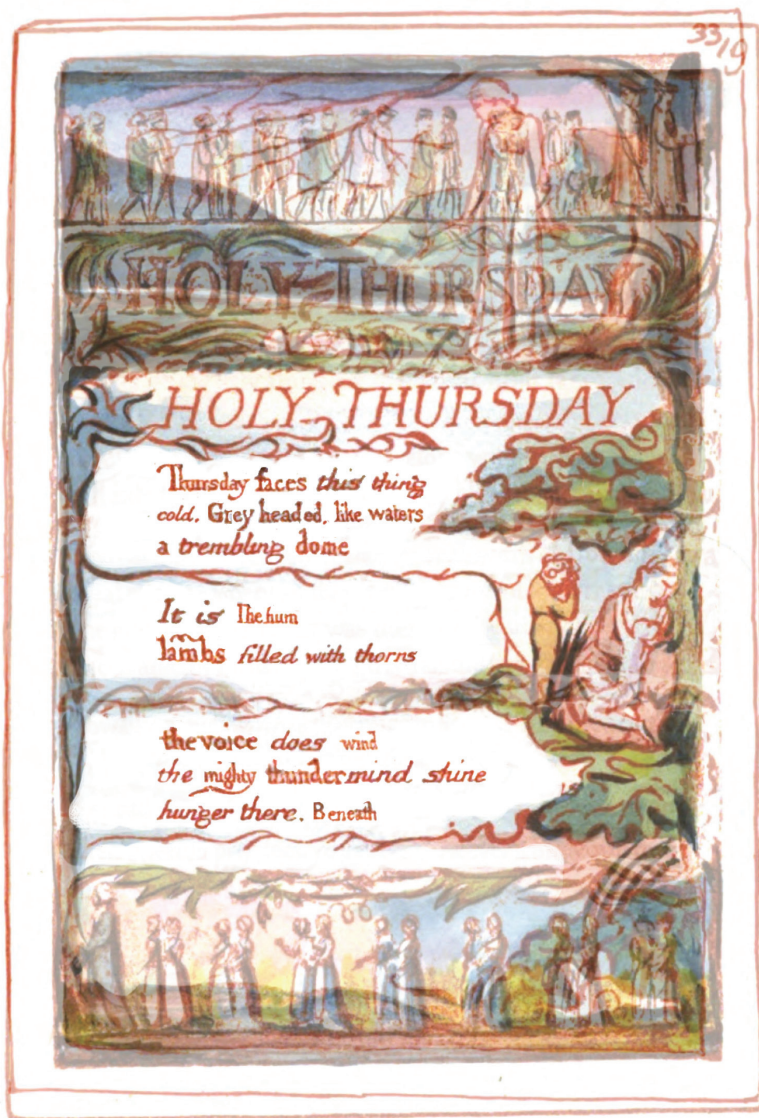 33/19
HOLY THURSDAY
HOLY THURSDAY
Thursday faces this thing
cold. Grey headed, like waters
a trembling dome
It is The hum
lambs filled with thorns
the voice does wind
the mighty thunder mind shine
hunger there. Beneath